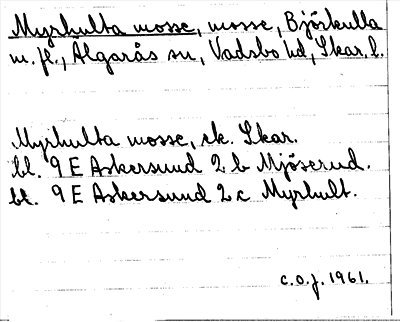 Myrhulta mosse, mosse, Björkulla
m.fl., Älgarås sn, Vadsbo hd, Skar. l.
Myrhulta mosse, ek. Skar.
bl. 9 E Askersund 2 b Mjöserud.
bl. 9 E Askersund 2 c Myrhult.
c.o.j. 1961.